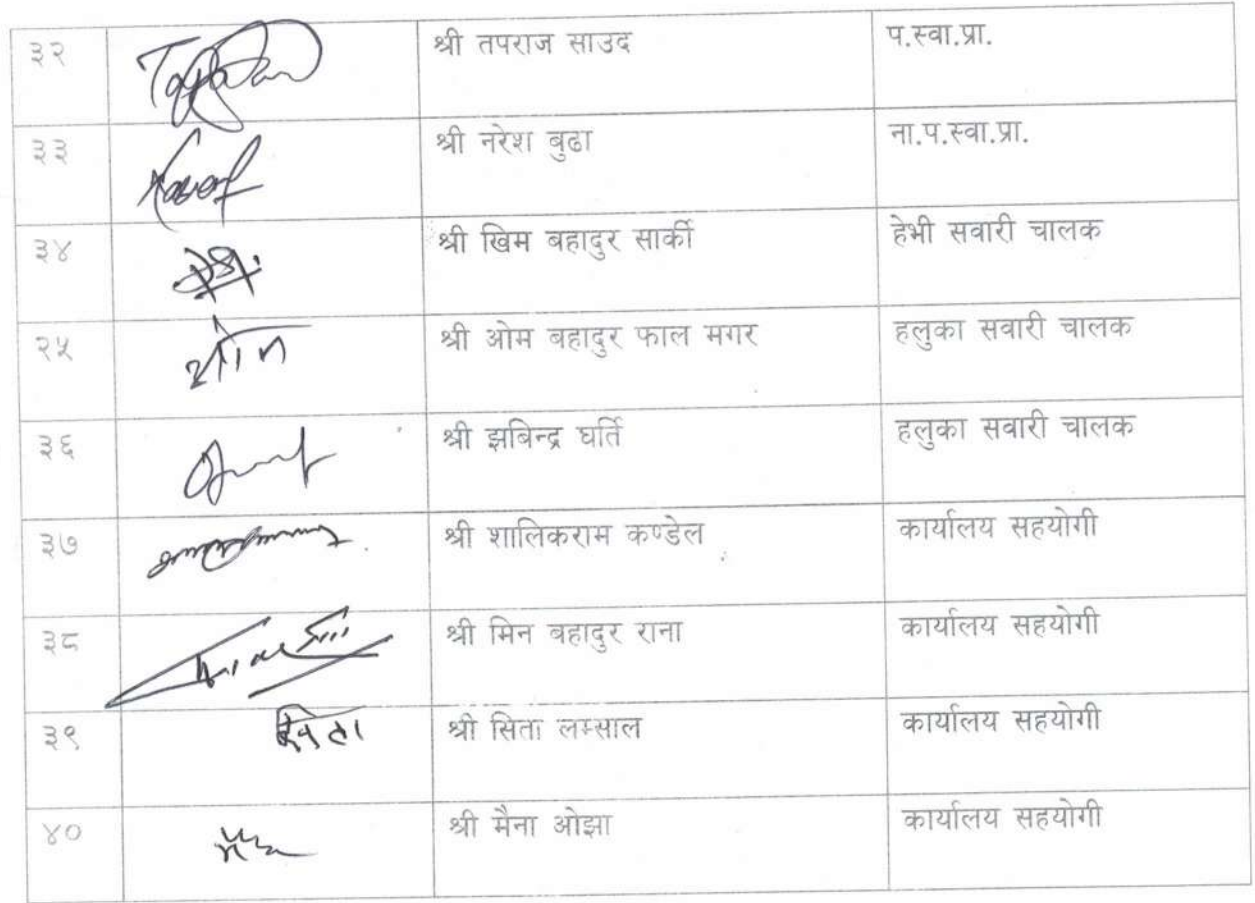 ३२ श्री तपराज साउद प.स्वा.प्रा.
३३ श्री नरेश बुढा ना.प.स्वा.प्रा.
३४ श्री खिम बहादुर सार्की हेभी सवारी चालक
२५ श्री ओम बहादुर फाल मगर हलुका सवारी चालक
३६ श्री झबिन्द्र घर्ति हलुका सवारी चालक
३७ श्री शालिकराम कण्डेल कार्यालय सहयोगी
३८ श्री मिन बहादुर राना कार्यालय सहयोगी
३९ सिता श्री सिता लम्साल कार्यालय सहयोगी
४० श्री मैना ओझा कार्यालय सहयोगी